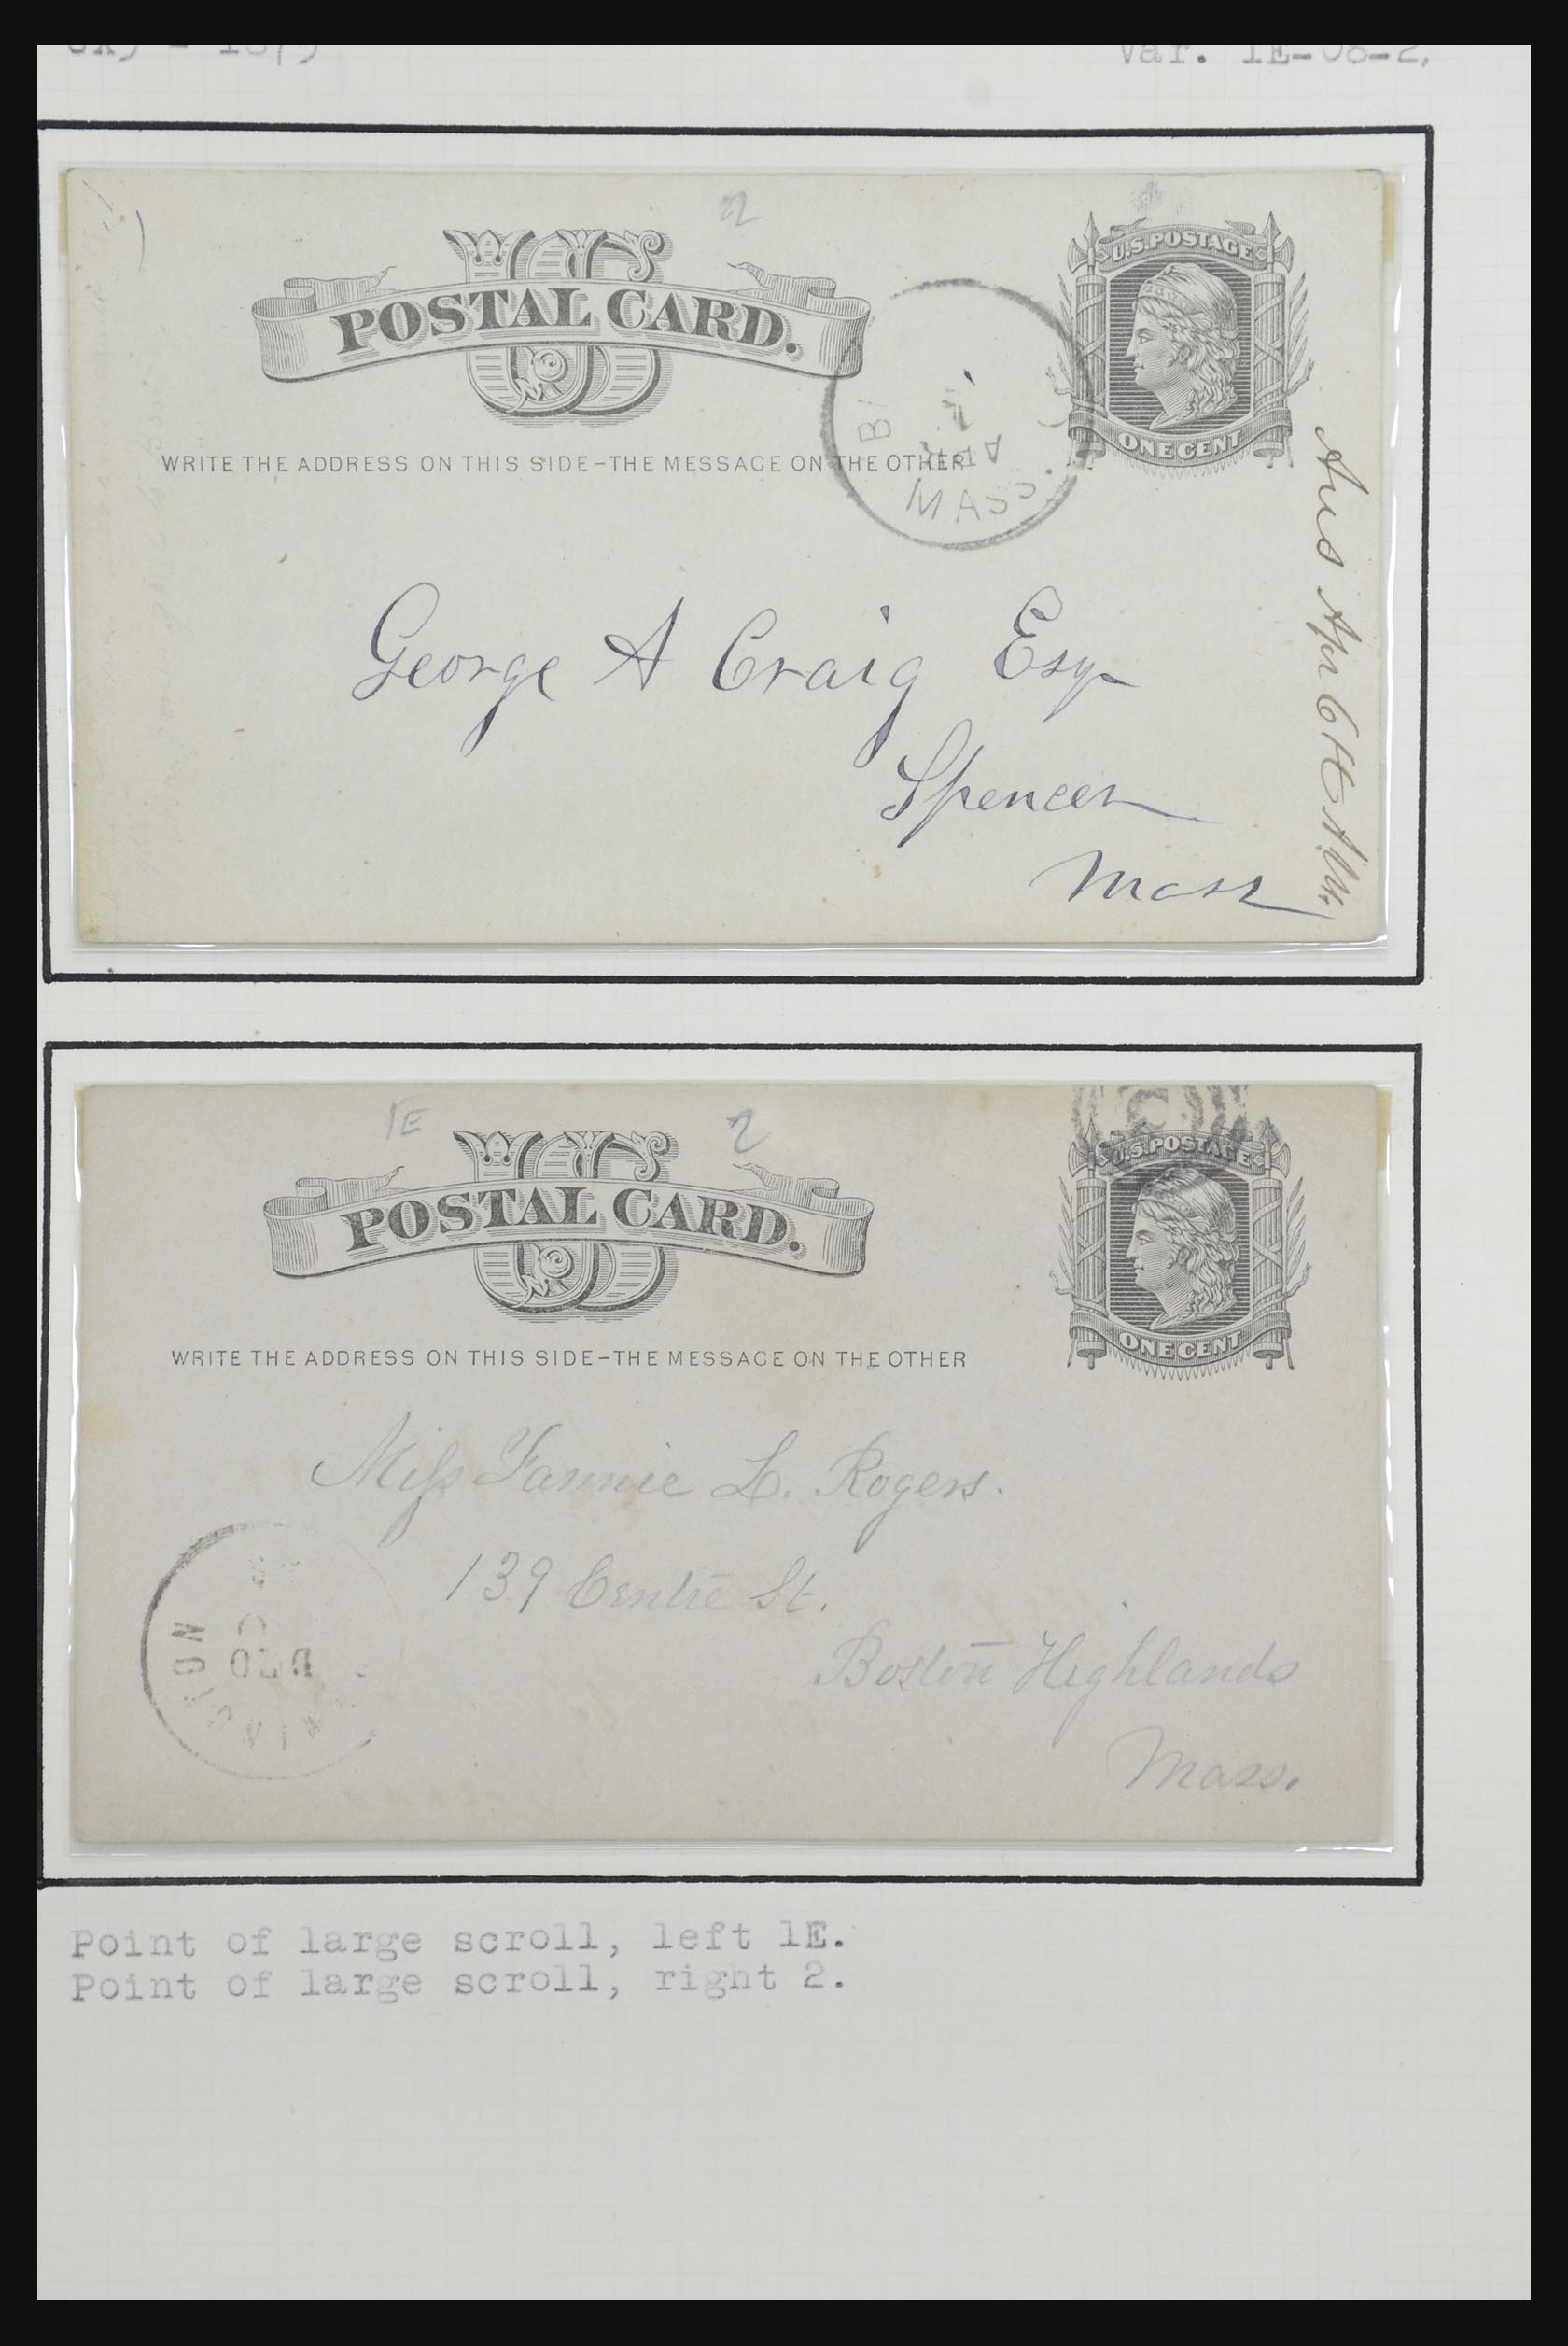 Var. 1E-06-2,
2
US
POSTAL CARD.
U.S. POSTAGE
ONE CENT
WRITE THE ADDRESS ON THIS SIDE-THE MESSAGE ON THE OTHER
MASS.
George A Craig Esq
Spencer
Mass
Ans Apr 6th A.M.
1E
2
US
POSTAL CARD.
U.S. POSTAGE
ONE CENT
WRITE THE ADDRESS ON THIS SIDE-THE MESSAGE ON THE OTHER
Miss Fannie L. Rogers.
139 Centre St.
Boston Highlands
Mass.
Point of large scroll, left 1E.
Point of large scroll, right 2.